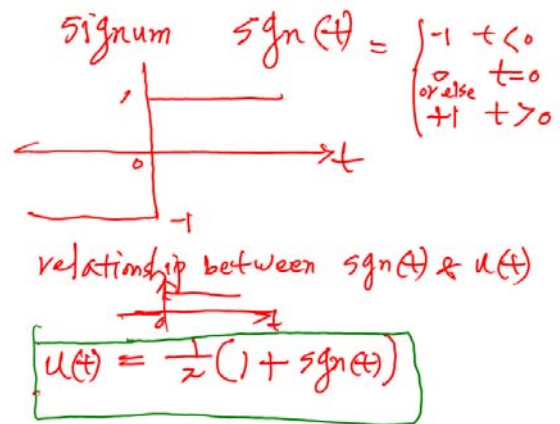 signum sgn(t) = { -1 t<0
0 t=0
or else
+1 t>0
1
0 t
-1
relationship between sgn(t) & u(t)
0 t
u(t) = 1/2 (1 + sgn(t))